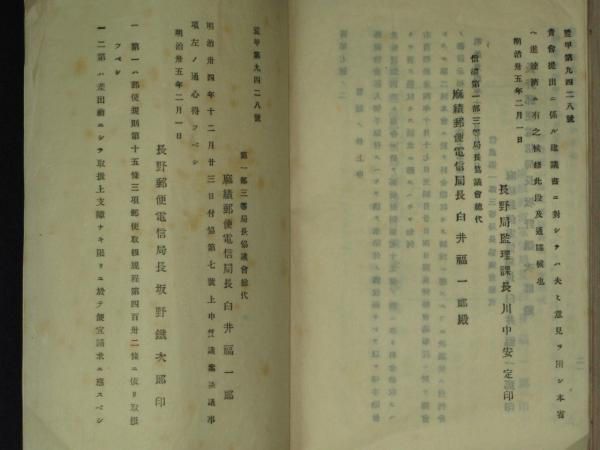 監甲第九四二八號
貴會提出ニ係ル建議書ニ對シテハ夫々意見ヲ附シ本省
ヘ進達濟ニ有之候條此段及通牒候也
明治卅五年二月一日
長野局監理課長 川中安定印
信濃第一部三等局長協議會總代
麻績郵便電信局長 臼井福一郎殿
監甲第九四二八號
第一部三等局長協議會總代
麻績郵便電信局長 臼井福一郎
明治卅四年十二月廿三日付協第七號上申 議案決議事
項左ノ通心得フベシ
明治卅五年二月一日
長野郵便電信局長 坂野鐵次郎印
一 第一ハ郵便規則第十五條三項郵便取扱規程第四百卅二條ニ依リ取扱
フベシ
一 第 ハ差出 ニシテ取扱上支障ナキ限リニ於テ便宜請求ニ應スベシ